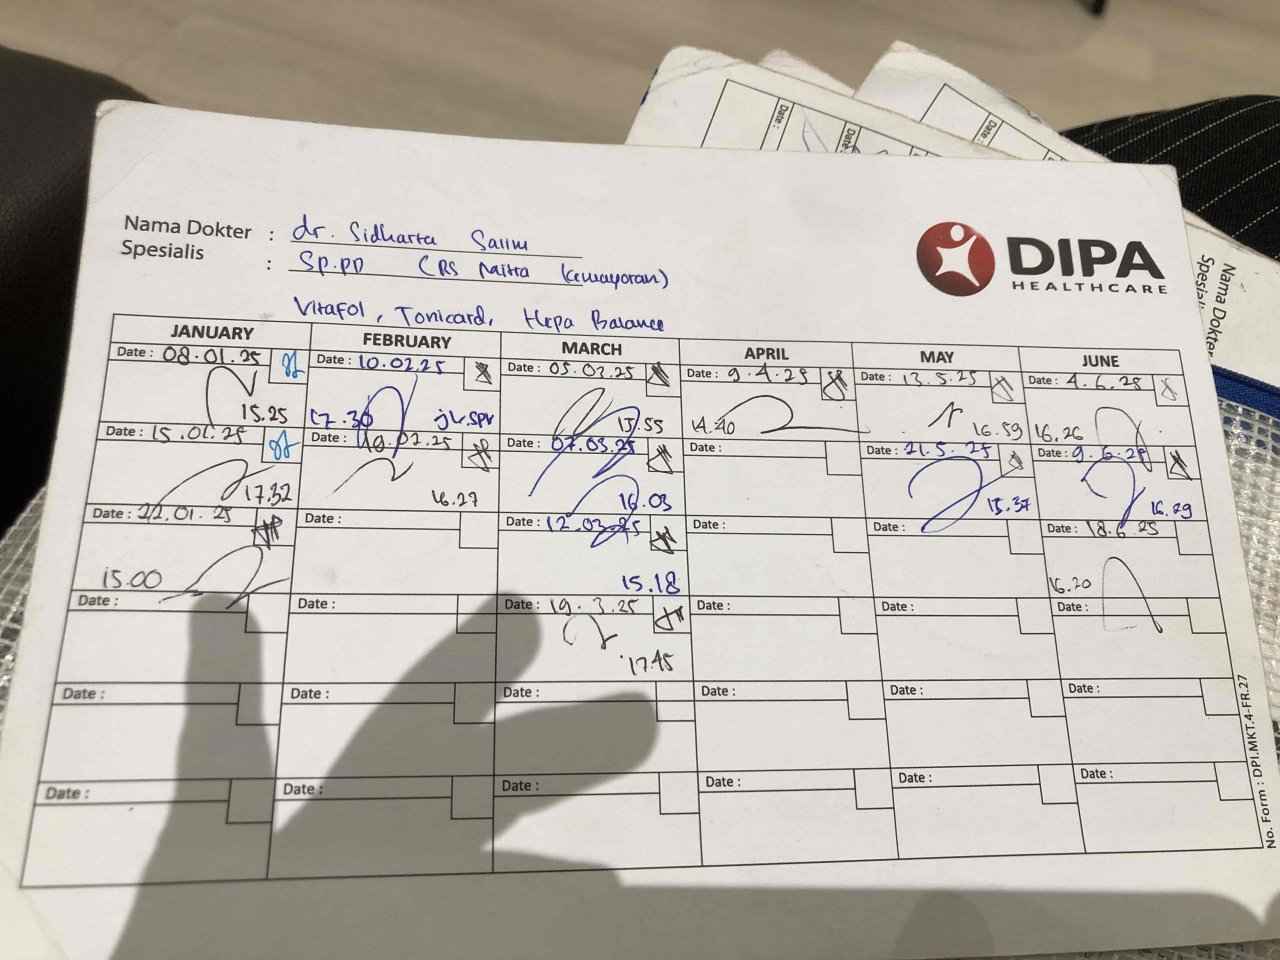 Nama Dokter : dr. Sidharta Salim
Spesialis : Sp.PD (RS Mitra Kemayoran)
DIPA
HEALTHCARE
Vitafol, Tonicard, Hepa Balance
JANUARY FEBRUARY MARCH APRIL MAY JUNE
Date : 08.01.25 Date : 10.02.25 Date : 05.03.25 Date : 9.4.25 Date : 13.5.25 Date : 4.6.25
15.25 17.30 15.55 14.40 16.59 16.26
Date : 15.01.25 Date : 19.02.25 Date : 07.03.25 Date : Date : 21.5.25 Date : 9.6.25
17.32 16.27 16.03 15.37 16.29
Date : 22.01.25 Date : Date : 12.03.25 Date : Date : Date : 18.6.25
15.00 15.18 16.20
Date : Date : Date : 19.3.25 Date : Date : Date :
17.45
Date : Date : Date : Date : Date : Date :
Date : Date : Date : Date : Date : Date :
No. Form : DPI.MKT.4-FR.27
Date :
Date :
Date :
Nama Dokter
Spesial